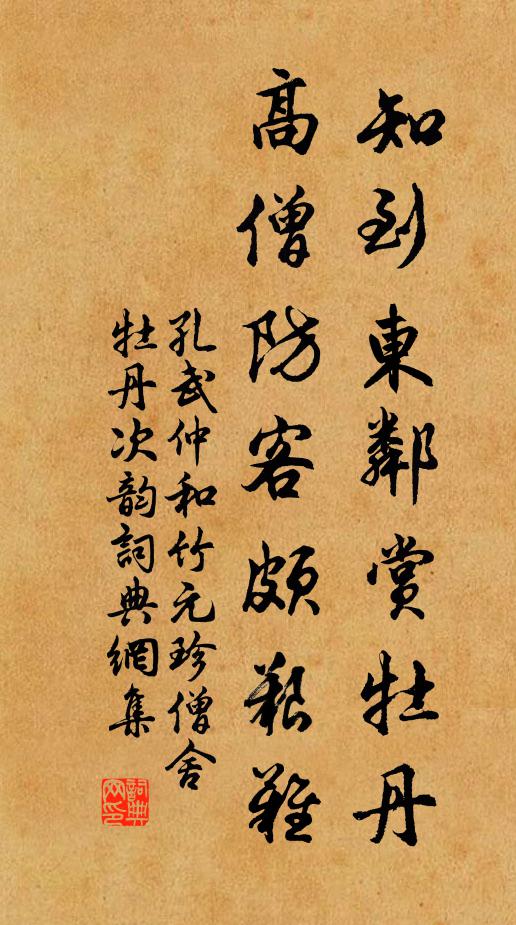 知到東鄰賞牡丹
高僧防客頗艱難
孔武仲和竹元珍僧舍
牡丹次韵詞典網集
詞典網印